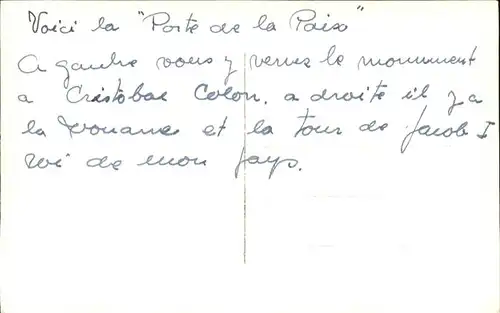 Voici la "Porte de la Paix"
A gauche vous y verrez le monument
a Cristobal Colon. a droite il y a
la Douane et la tour de Jacob I
roi de mon pays.